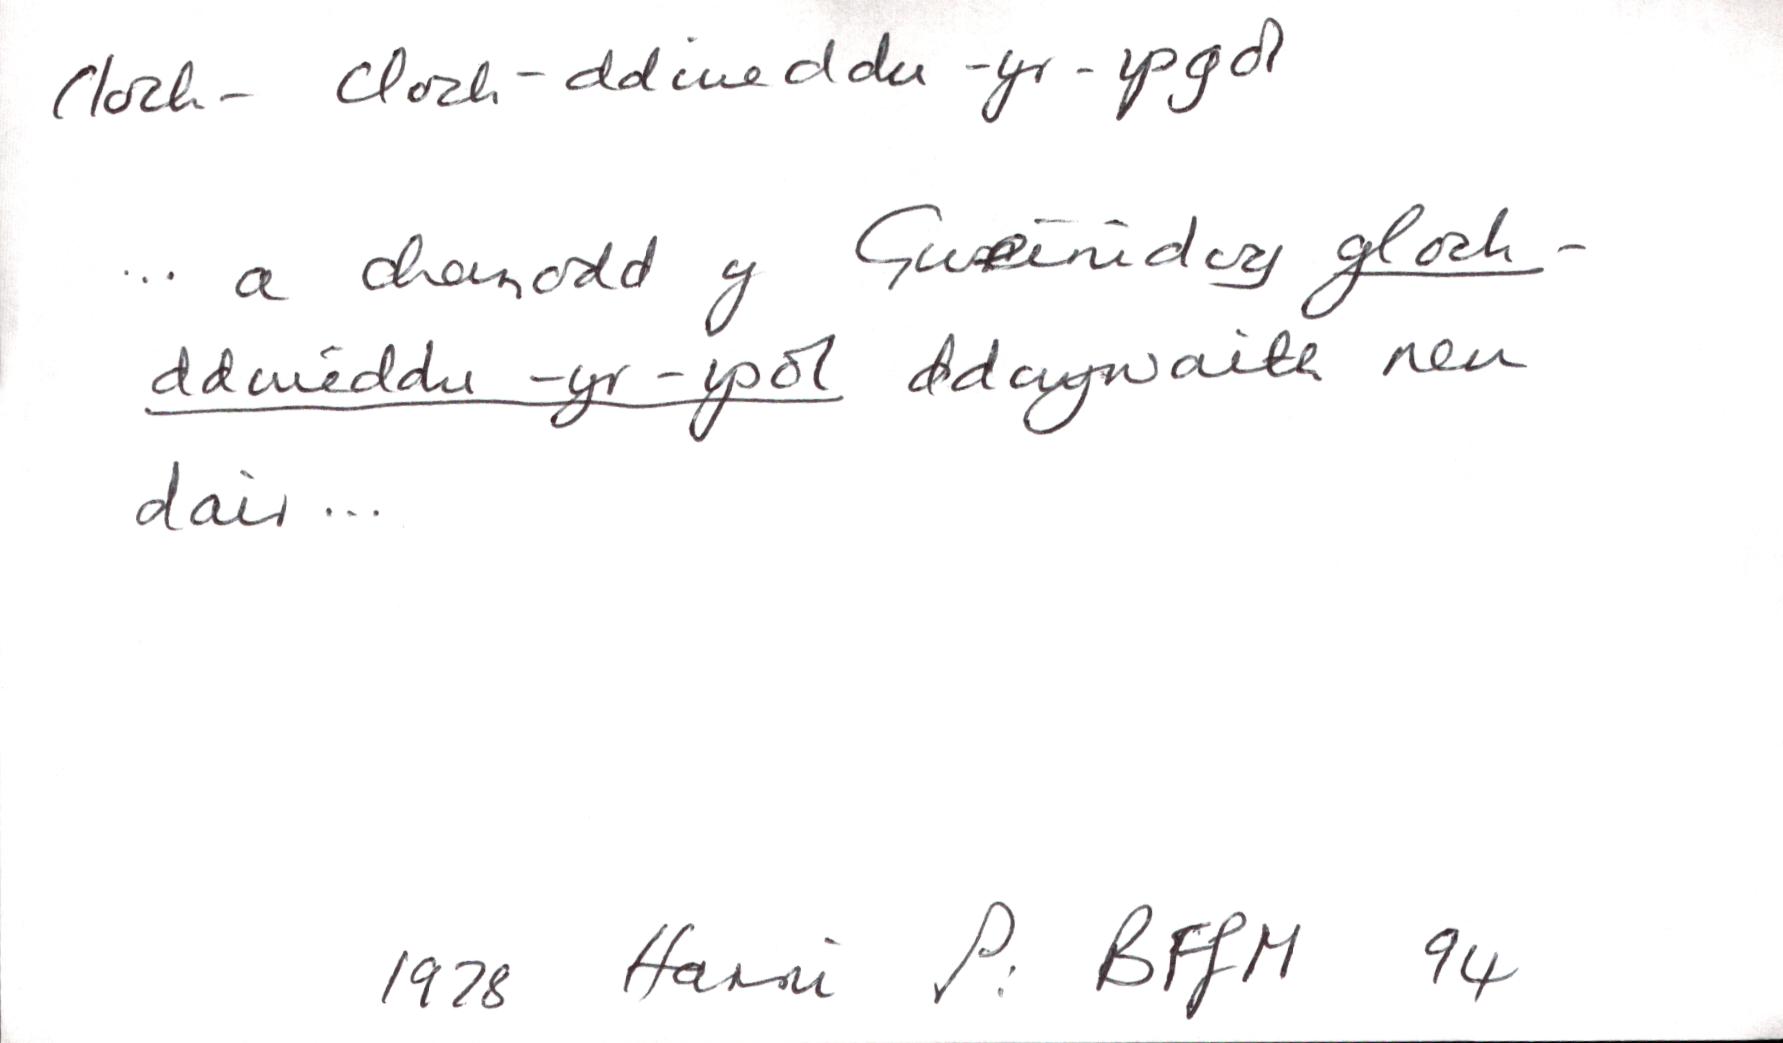 Cloch- Cloch-ddiweddu-yr-ysgol
... a chanodd y Gweinidog gloch-
ddiweddu-yr-ysol ddwywaith neu
dair...
1978 Harri P. BFfM 94